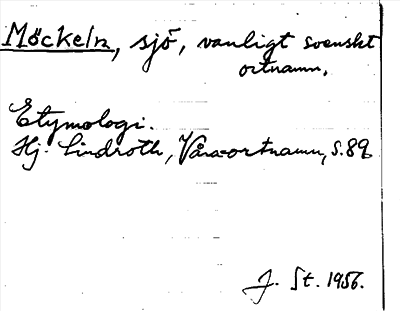 Möckeln, sjö, vanligt svenskt
ortnamn.
Etymologi.
Hj. Lindroth, Våra ortnamn, s. 89
J. St. 1956.